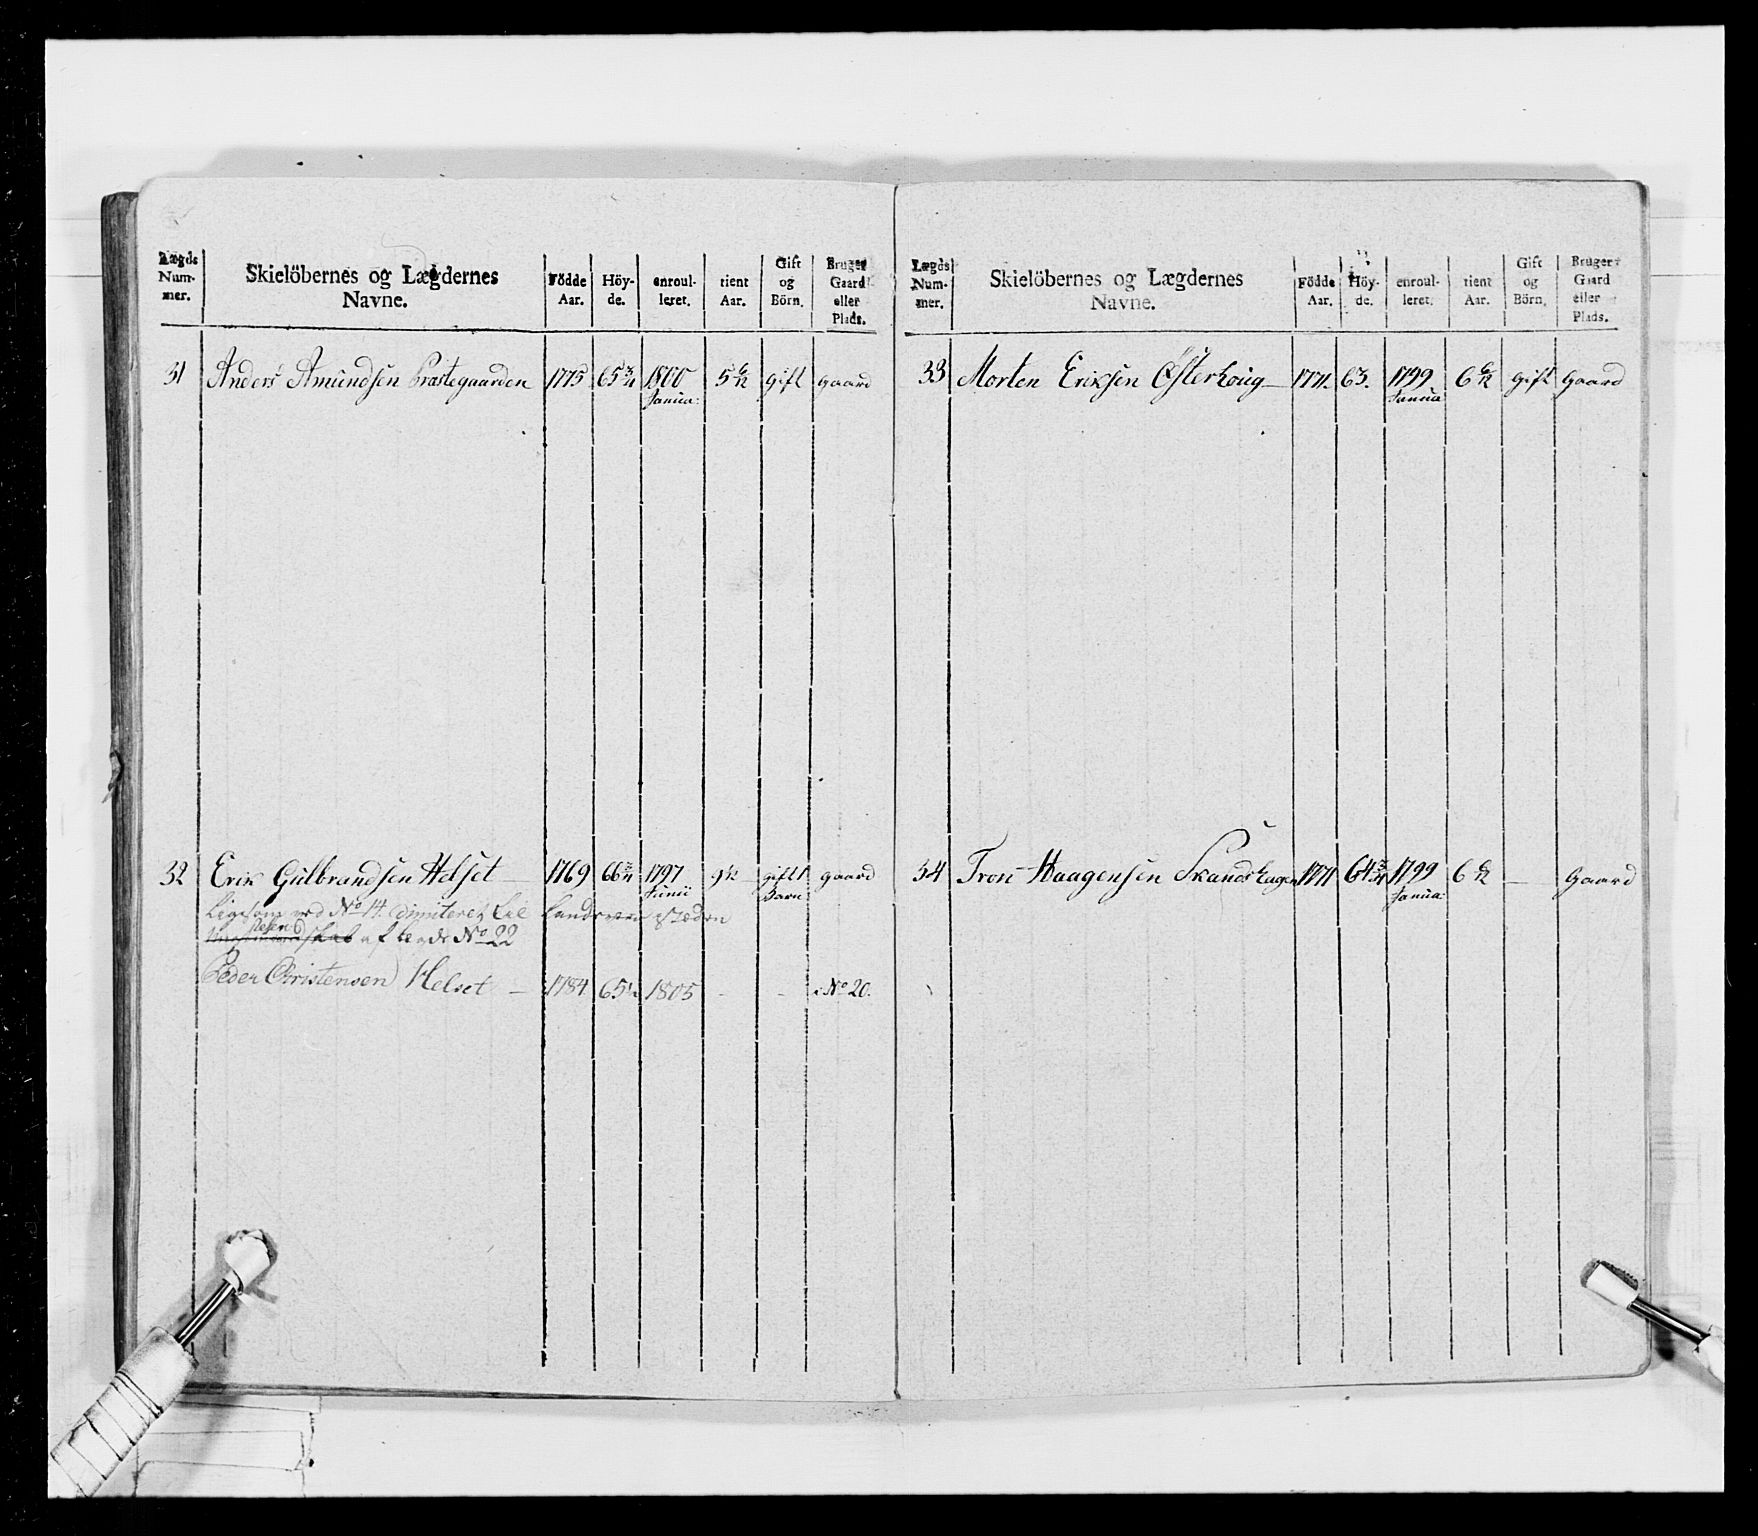 Lægds Num-mer. Skielöbernes og Lægdernes Navne. Födde Aar. Höy-de. enroul-leret. tient Aar. Gift og Börn. Bruger Gaard eller Plads.
31 Anders Amundsen Præstegaarden 1775 65 3/4 1800 Janua: 5 6/12 gift gaard
32 Erik Gulbrandsen Helset 1769 66 3/4 1797 Junii 9 1/2 gift 1 Barn gaard
Ligesom ved No 14. dimiteret til Landværn
af No 22
Peder Christensen Helset 1784 65 1/2 1805 - - i No 20.
Lægds Num-mer. Skielöbernes og Lægdernes Navne. Födde Aar. Höy-de. enroul-leret. tient Aar. Gift og Börn. Bruger Gaard eller Plads.
33 Morten Eriksen Østerhoug 1771. 63. 1799 Janua 6 6/12 gift Gaard
34 Tron Haagensen Strandshagen 1771 64 3/4 1799 Janua: 6 6/12 — Gaard